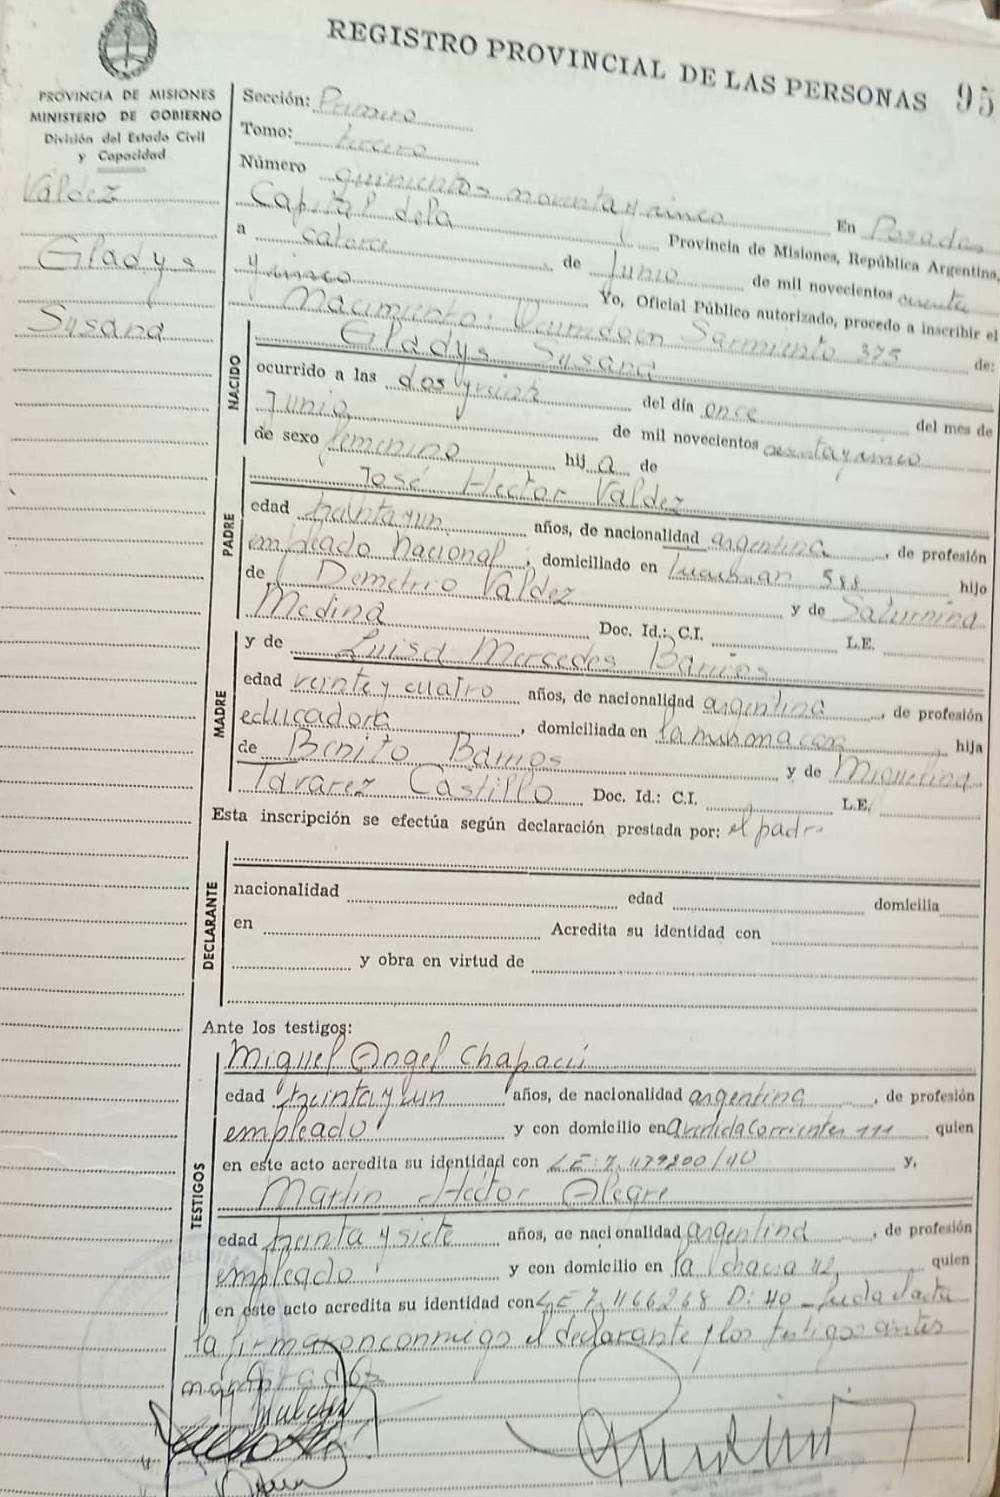 REGISTRO PROVINCIAL DE LAS PERSONAS 95
PROVINCIA DE MISIONES
MINISTERIO DE GOBIERNO
División del Estado Civil
y Capacidad
Valdez
Gladys
Susana
Sección: Primero
Tomo: tercero
Número quinientos noventa y cinco En Posadas
Capital de la Provincia de Misiones, República Argentina,
a catorce de Junio de mil novecientos
y cinco Yo, Oficial Público autorizado, procedo a inscribir el
nacimiento: Ocurrido en Sarmiento 375 de:
NACIDO
Gladys Susana
ocurrido a las dos y veinte del día once del mes de
Junio de mil novecientos y cinco
de sexo femenino hija de
PADRE
José Hector Valdez
edad treinta y un años, de nacionalidad argentina, de profesión
empleado nacional, domiciliado en Tucuman 588 hijo
de Demetrio Valdez y de Saturnina
Medina Doc. Id.: C.I. L.E.
MADRE
y de Luisa Mercedes Barrios
edad veinte y cuatro años, de nacionalidad argentina, de profesión
educadora, domiciliada en la misma casa hija
de Benito Barrios y de Miguelina
Tavarez Castillo Doc. Id.: C.I. L.E.
Esta inscripción se efectúa según declaración prestada por: el padre
DECLARANTE
nacionalidad edad domicilia
en Acredita su identidad con
y obra en virtud de
Ante los testigos:
TESTIGOS
Miguel Angel Chapacú
edad treinta y un años, de nacionalidad argentina, de profesión
empleado y con domicilio en Avenida Corrientes 111 quien
en este acto acredita su identidad con LE: 7.479800/40 y,
Martin Hector Alegre
edad treinta y siete años, de nacionalidad argentina, de profesión
empleado y con domicilio en la chacra 112, quien
en este acto acredita su identidad con LE 7.466268 D: 40 _ leida el acta
la firmaron conmigo el declarante y los testigos antes